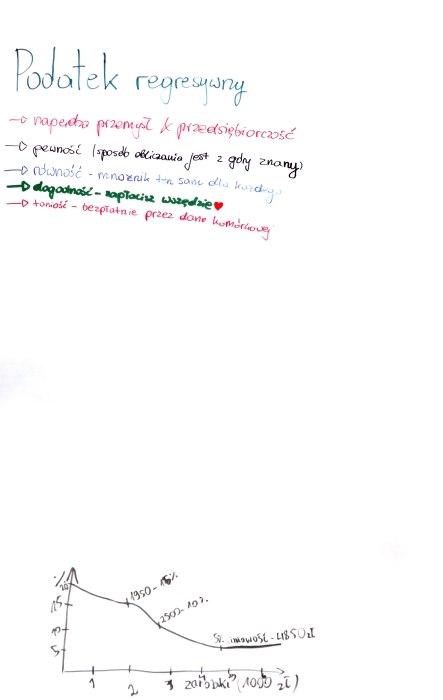 Podatek regresywny
→ napędza przemysł & przedsiębiorczość
→ pewność (sposób obliczania jest z góry znany)
→ równość - mnożnik ten sam dla każdego
→ dogodność - zapłacisz wszędzie ♥
→ taniość - bezpłatnie przez dane komórkowe
%
20
1950 - 15%
15
2500 - 10%
10
5% umowość - 4850 zł
5
1 2 3 4 5 6 7
zarobki (1000 zł)